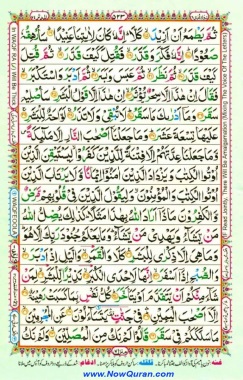 ثُمَّ يَطْمَعُ اَنْ اَزِيْدَ كَلَّا اِنَّهٗ كَانَ لِاٰيٰتِنَا عَنِيْدًا سَاُرْهِقُهٗ
صَعُوْدًا اِنَّهٗ فَكَّرَ وَقَدَّرَ فَقُتِلَ كَيْفَ قَدَّرَ ثُمَّ قُتِلَ
كَيْفَ قَدَّرَ ثُمَّ نَظَرَ ثُمَّ عَبَسَ وَبَسَرَ ثُمَّ اَدْبَرَ وَاسْتَكْبَرَ
فَقَالَ اِنْ هٰذَآ اِلَّا سِحْرٌ يُّؤْثَرُ اِنْ هٰذَآ اِلَّا قَوْلُ الْبَشَرِ سَاُصْلِيْهِ
سَقَرَ وَمَآ اَدْرٰىكَ مَا سَقَرُ لَا تُبْقِيْ وَلَا تَذَرُ لَوَّاحَةٌ لِّلْبَشَرِ
عَلَيْهَا تِسْعَةَ عَشَرَ وَمَا جَعَلْنَآ اَصْحٰبَ النَّارِ اِلَّا مَلٰٓئِكَةً
وَّمَا جَعَلْنَا عِدَّتَهُمْ اِلَّا فِتْنَةً لِّلَّذِيْنَ كَفَرُوْا لِيَسْتَيْقِنَ الَّذِيْنَ
اُوْتُوا الْكِتٰبَ وَيَزْدَادَ الَّذِيْنَ اٰمَنُوْٓا اِيْمَانًا وَّلَا يَرْتَابَ الَّذِيْنَ
اُوْتُوا الْكِتٰبَ وَالْمُؤْمِنُوْنَ وَلِيَقُوْلَ الَّذِيْنَ فِيْ قُلُوْبِهِمْ مَّرَضٌ
وَّالْكٰفِرُوْنَ مَاذَآ اَرَادَ اللّٰهُ بِهٰذَا مَثَلًا كَذٰلِكَ يُضِلُّ اللّٰهُ
مَنْ يَّشَآءُ وَيَهْدِيْ مَنْ يَّشَآءُ وَمَا يَعْلَمُ جُنُوْدَ رَبِّكَ اِلَّا هُوَ
وَمَا هِيَ اِلَّا ذِكْرٰى لِلْبَشَرِ كَلَّا وَالْقَمَرِ وَالَّيْلِ اِذْ اَدْبَرَ
وَالصُّبْحِ اِذَآ اَسْفَرَ اِنَّهَا لَاِحْدَى الْكُبَرِ نَذِيْرًا لِّلْبَشَرِ لِمَنْ
شَآءَ مِنْكُمْ اَنْ يَّتَقَدَّمَ اَوْ يَتَاَخَّرَ كُلُّ نَفْسٍ بِمَا كَسَبَتْ رَهِيْنَةٌ
اِلَّآ اَصْحٰبَ الْيَمِيْنِ فِيْ جَنّٰتٍ يَتَسَآءَلُوْنَ عَنِ الْمُجْرِمِيْنَ
مَا سَلَكَكُمْ فِيْ سَقَرَ قَالُوْا لَمْ نَكُ مِنَ الْمُصَلِّيْنَ وَلَمْ نَكُ
www.NowQuran.com